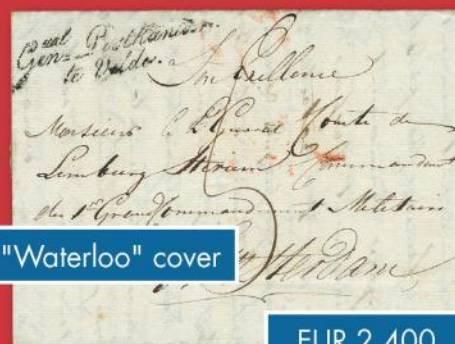 Genˡ Postkantoor
te Velde.
Son Excellence
Monsieur le Lt General Comte de
Limburg Stirum Commandant
du 1er Grand Commandement Militaire
"Waterloo" cover
Amsterdam
EUR 2.400